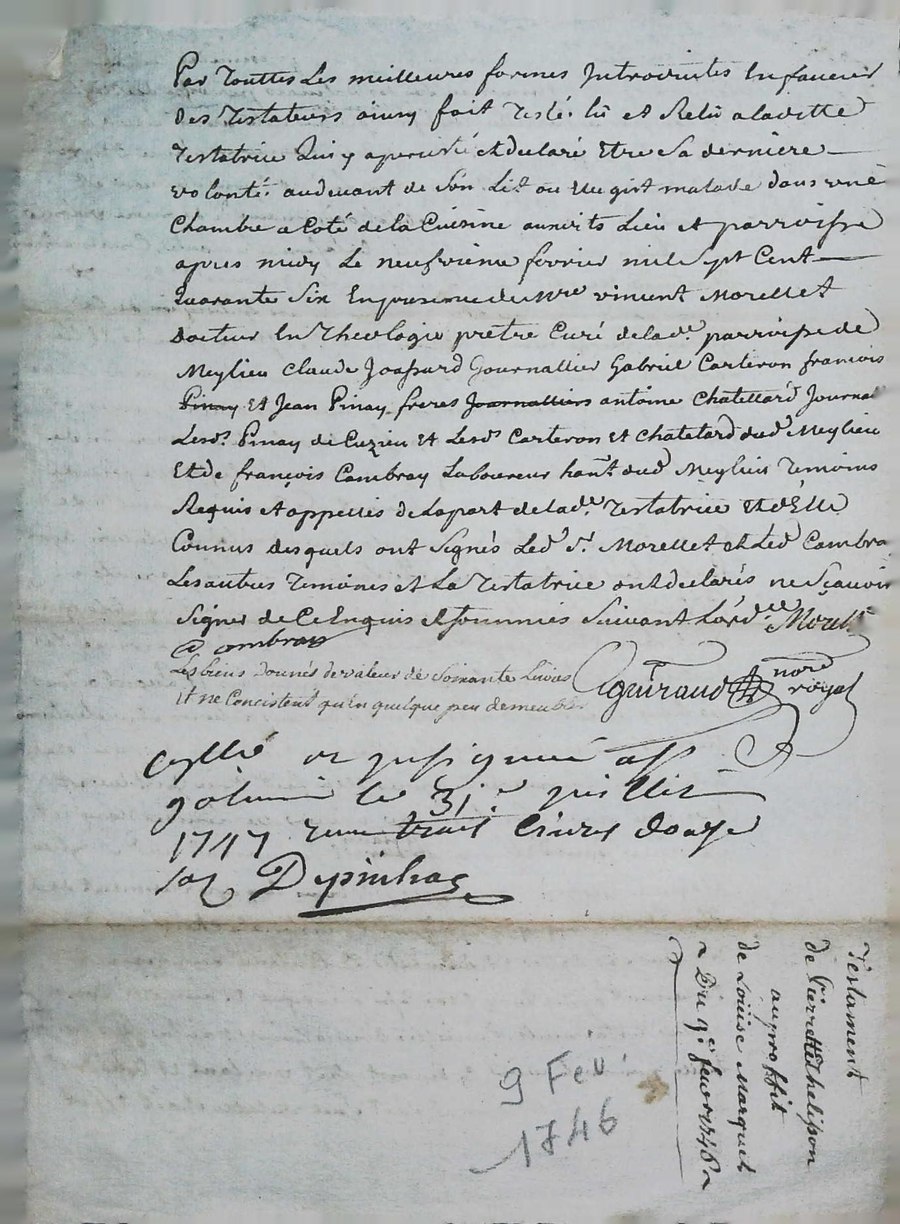 Par Touttes Les meilleures formes Introduites En faveur
des Testateurs ainsy fait Testé. lû et Relû a laditte
Testatrice Quiy a persisté et declaré Etre Sa derniere
volonté. audevant de Son Lit ou Elle gist malade dans une
Chambre a Coté de la Cuisine auxdits Lieu et parroisse
apres midy Le neufvieme fevrier mil Sept Cent
Quarante Six En presence de Mre vincent Morellet
docteur En Theologie prêtre Curé de lade. parroisse de
Meylieu Claude Joassard Journallier Gabriel Carteron françois
Pinay Et Jean Pinay freres Journalliers antoine Chatellard Journal
Lesd. Pinay de Cuzieu Et Lesd. Carteron Et Chatelard dud. Meylieu
Et de françois Combray Laboureur hant. dud. Meylieu Temoins
Requis et appellés de La part de lade. Testatrice Et d'Elle
Connus desquels ont Signés Led. Sr. Morellet et Led. Combra
Les autres Temoins et La Testatrice ont declarés ne Sçavoir
Signer de Ce Enquis et Sommés Suivant L'ordce. Morellet
Combray
Les biens donnés de valeur de Soixante Livres
Et ne Concistent qu'en quelque peu de meubles
guiraud nore
royal
le 31e. juillet
1747 livres douze
sols
Testament
de Pierrette Thelisson
au proffit
de Loüise Marquet
Du 9e. fevr 1746
9 Fev.
1746